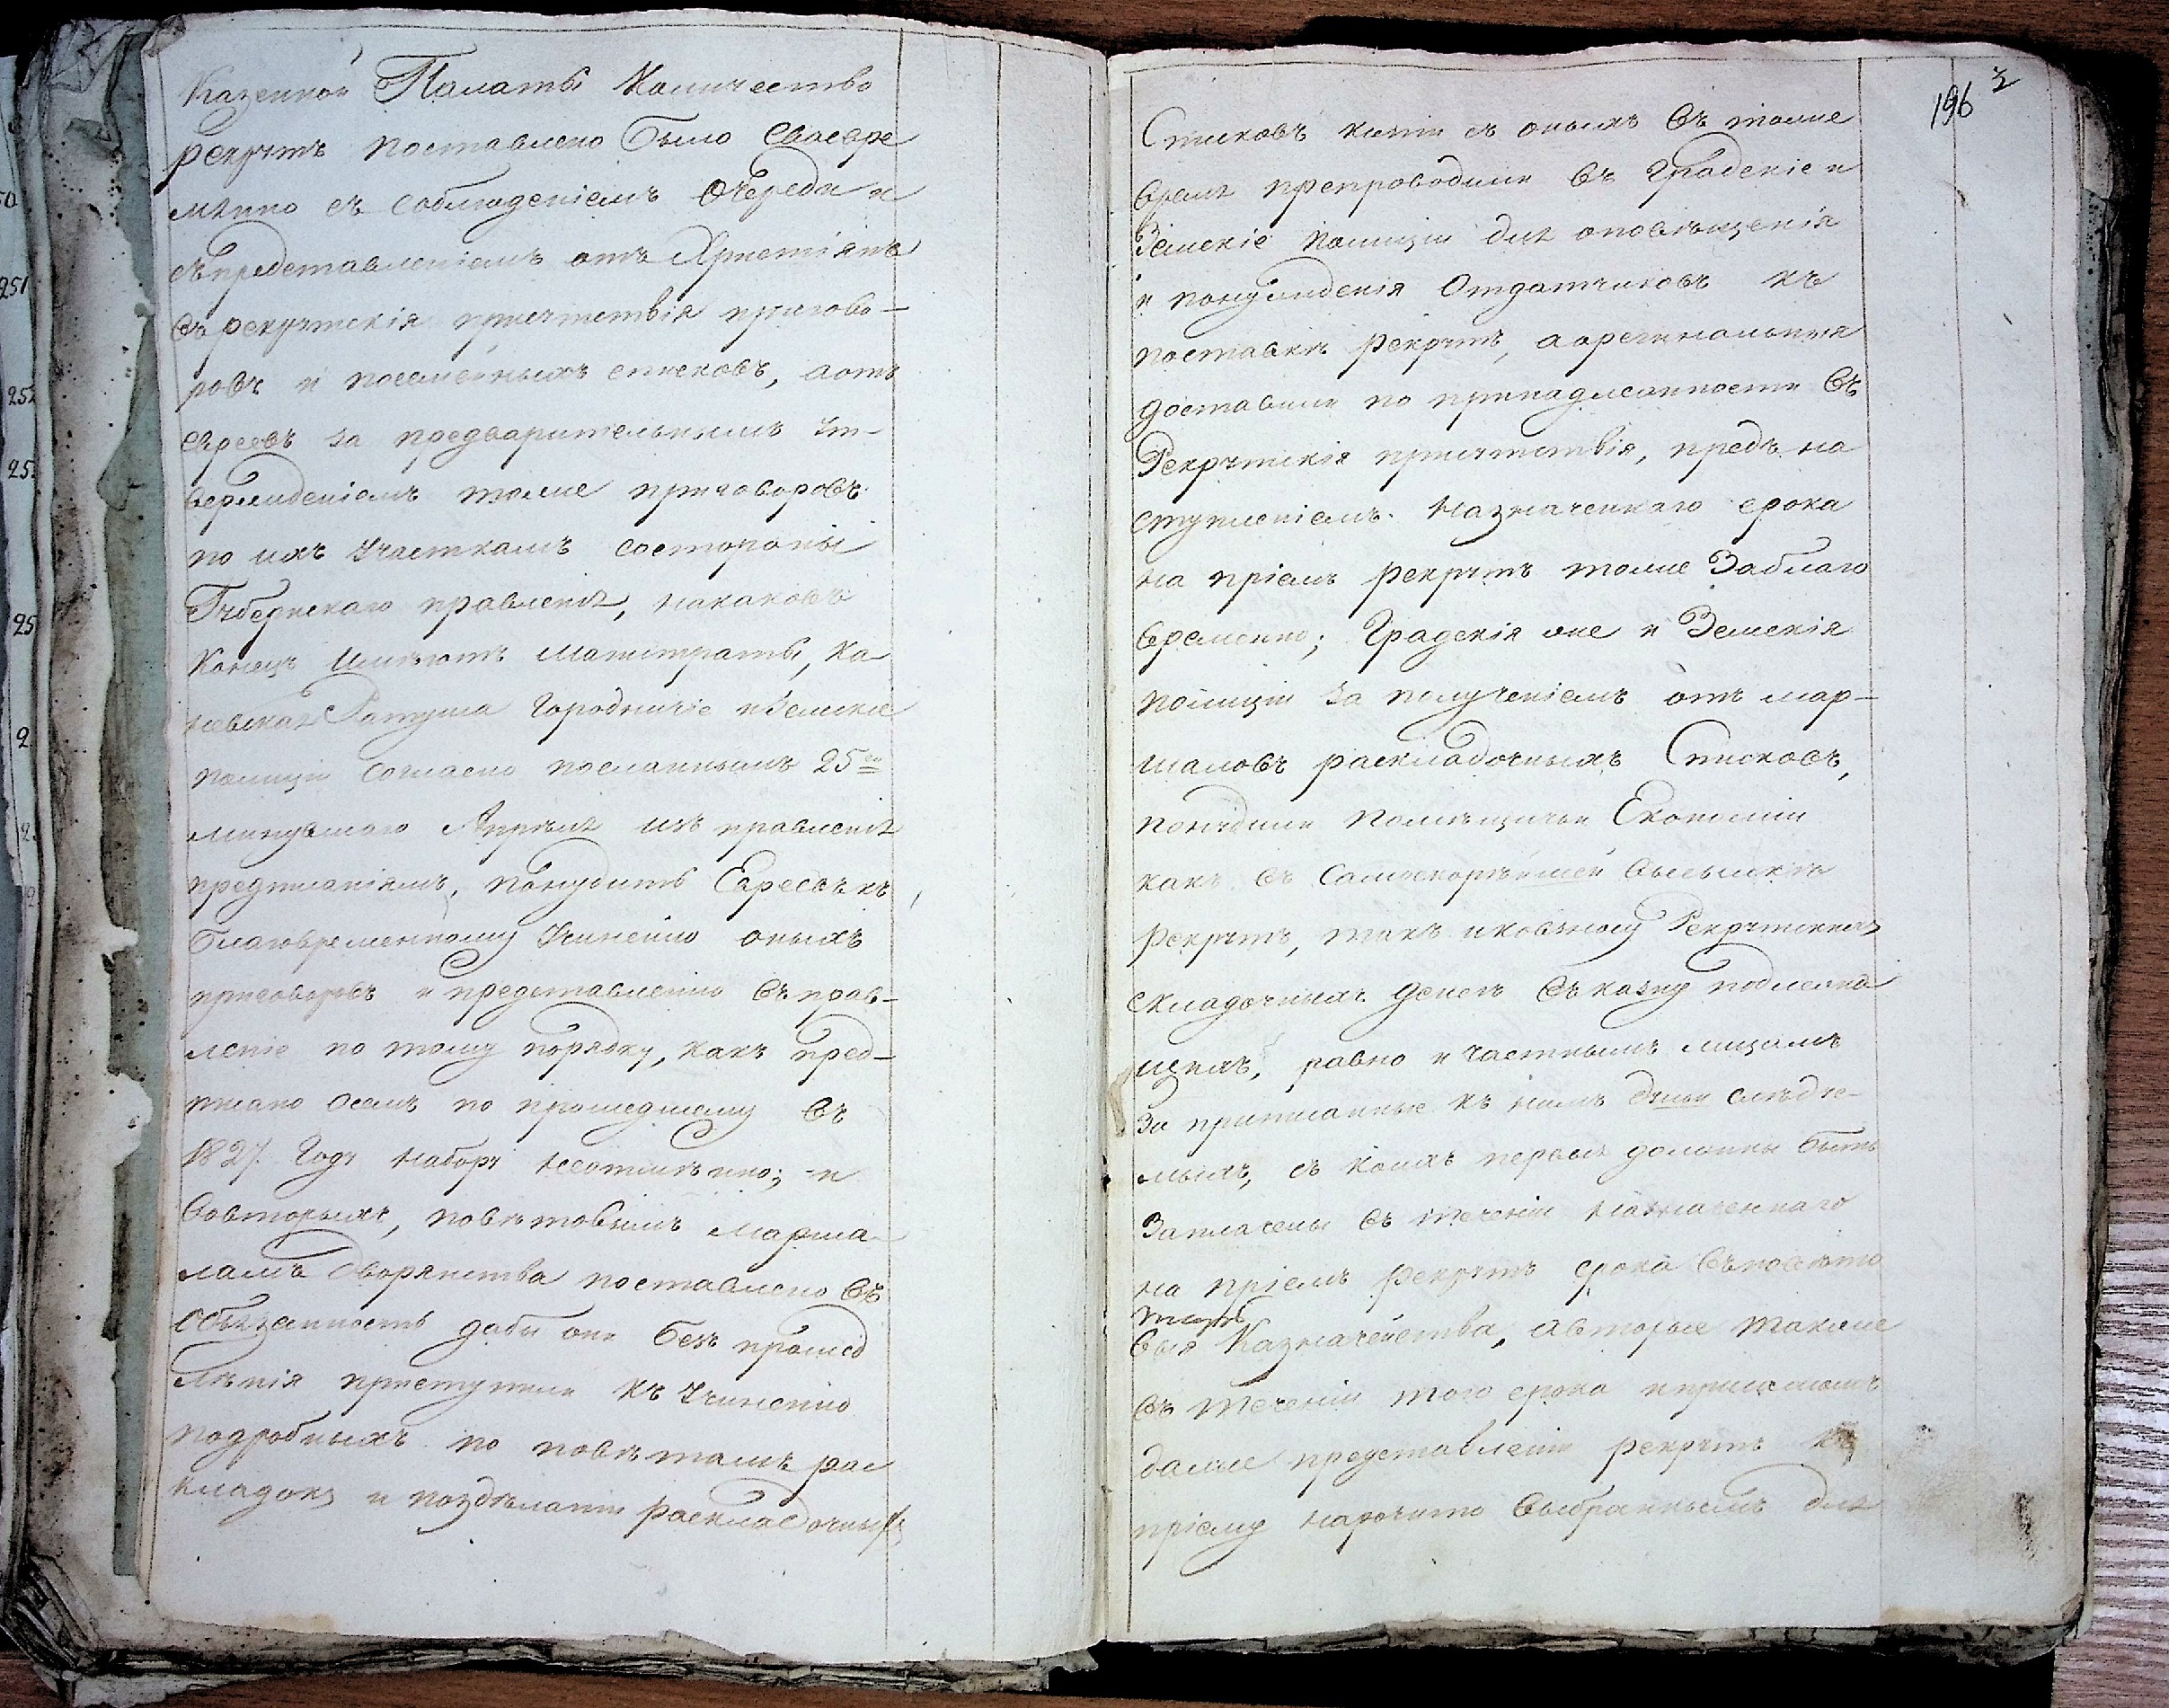 Казенной Палаты Количество
рекрутъ поставлено было своевре
мѣнно съ соблюденіемъ очереди и
съ представленіемъ отъ Христіянъ
въ рекрутскія присутствія пригово-
ровъ и посемейныхъ списковъ, а отъ
евреевъ за предварительнымъ ут-
вержденіемъ тоже приговоровъ
по ихъ участкамъ состороны
Губернскаго правленія, на каковъ
Конецъ имѣютъ Магистраты, Ка
невская Ратуша Городничіе и Земские
полиціи согласно посланнымъ 25го
минувшаго Апрѣля изъ правленія
предписаніямъ, понудить Евреевъ къ
благовременному учиненію оныхъ
приговоровъ и представленію въ прав-
леніе по тому порядку, какъ пред-
писано всемъ по прошедшему въ
1827. Году наборѣ неотмѣнно; и
вовторыхъ, повѣтовымъ марша-
ламъ дворянства поставлено въ
обязанность дабы они безъ промед
лѣнія приступили къ учиненію
подробныхъ по повѣтамъ рас
кладокъ и поздѣланіи раскладочныхъ
196
Списковъ копіи съ оныхъ въ тоже
время препроводили въ Градскіе и
Земскіе полиціи для оповѣщенія
и понужденія Отдатчиковъ къ
поставкѣ рекрутъ, а орегинальныя
доставили по принадлежности въ
Рекрутскія присутствія, предъ на
ступленіемъ назначеннаго срока
на пріемъ рекрутъ тоже Заблаго
временно; Градскія же и Земскія
полиціи за полученіемъ отъ мар-
шаловъ раскладочныхъ Списковъ,
понудили помѣщичьи Економіи
какъ въ самоскорѣйшей высылкѣ
рекрутъ, такъ и ковзносу Рекрутскихъ
складочныхъ денегъ въ казну подлежа
щихъ, равно и частнымъ лицамъ
За приписанные къ нимъ души слѣдуе-
мыхъ, съ коихъ первыя должны быть
Заплачены въ теченіи назначеннаго
на пріемъ рекрутъ срока въ повѣто
выя Казначейства, а вторые также
въ теченіи того срока и при самомъ
даже представленіи рекрутъ къ
пріему нарочито выбраннымъ для